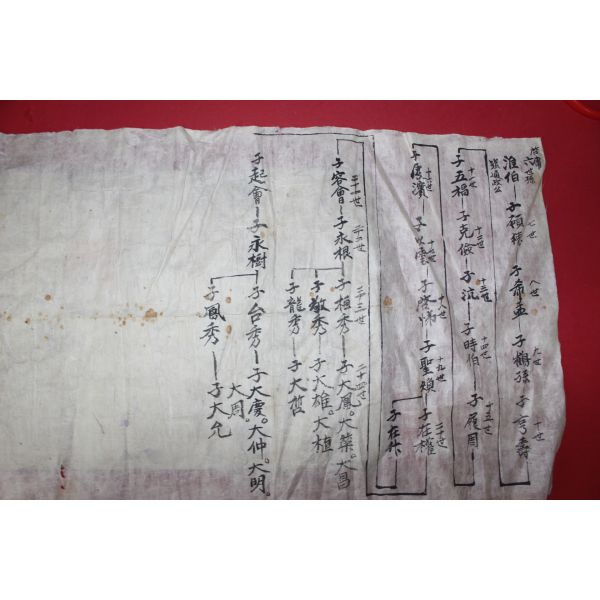 七世 八世 九世 十世
淮伯 子 子 孟 子鶴孫 子亨壽
十一世 十二世 十三世 十四世 十五世
子五福 子克儉 子沆 子時伯 子履周
十六世 十七世 十八世 十九世 二十世
子 濱 子 雲 子 子聖 子在權
子在作
二十一世 二十二世 二十三世 二十四世
子容會 子永根 子 秀 子大鳳。大 。大昌
子敬秀 子大雄。大植
子龍秀 子大哲
子起會 子永樹 子台秀 子大慶。大仲。大明。
大周。
子鳳秀 子大允